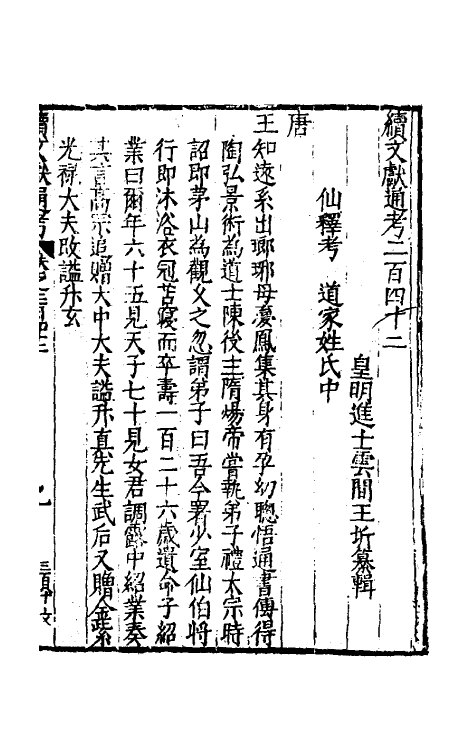 續文獻通考二百四十二
皇明進士雲間王圻纂輯
仙釋考 道家姓氏中
唐
王知遠系出瑯琊母夢鳳集其身有孕幼聰悟通書傳得
陶弘景術為道士陳後主隋煬帝嘗執弟子禮太宗時
詔即茅山為觀义之忽謂弟子曰吾今署少室仙伯將
行即沐浴衣冠若寢而卒壽一百二十六歲遺命子紹
業曰爾年六十五見天子七十見女君調露中紹業奏
其言高宗追贈大中大夫諡升真先生武后又贈金紫
光祿大夫改諡升玄
續文獻通考